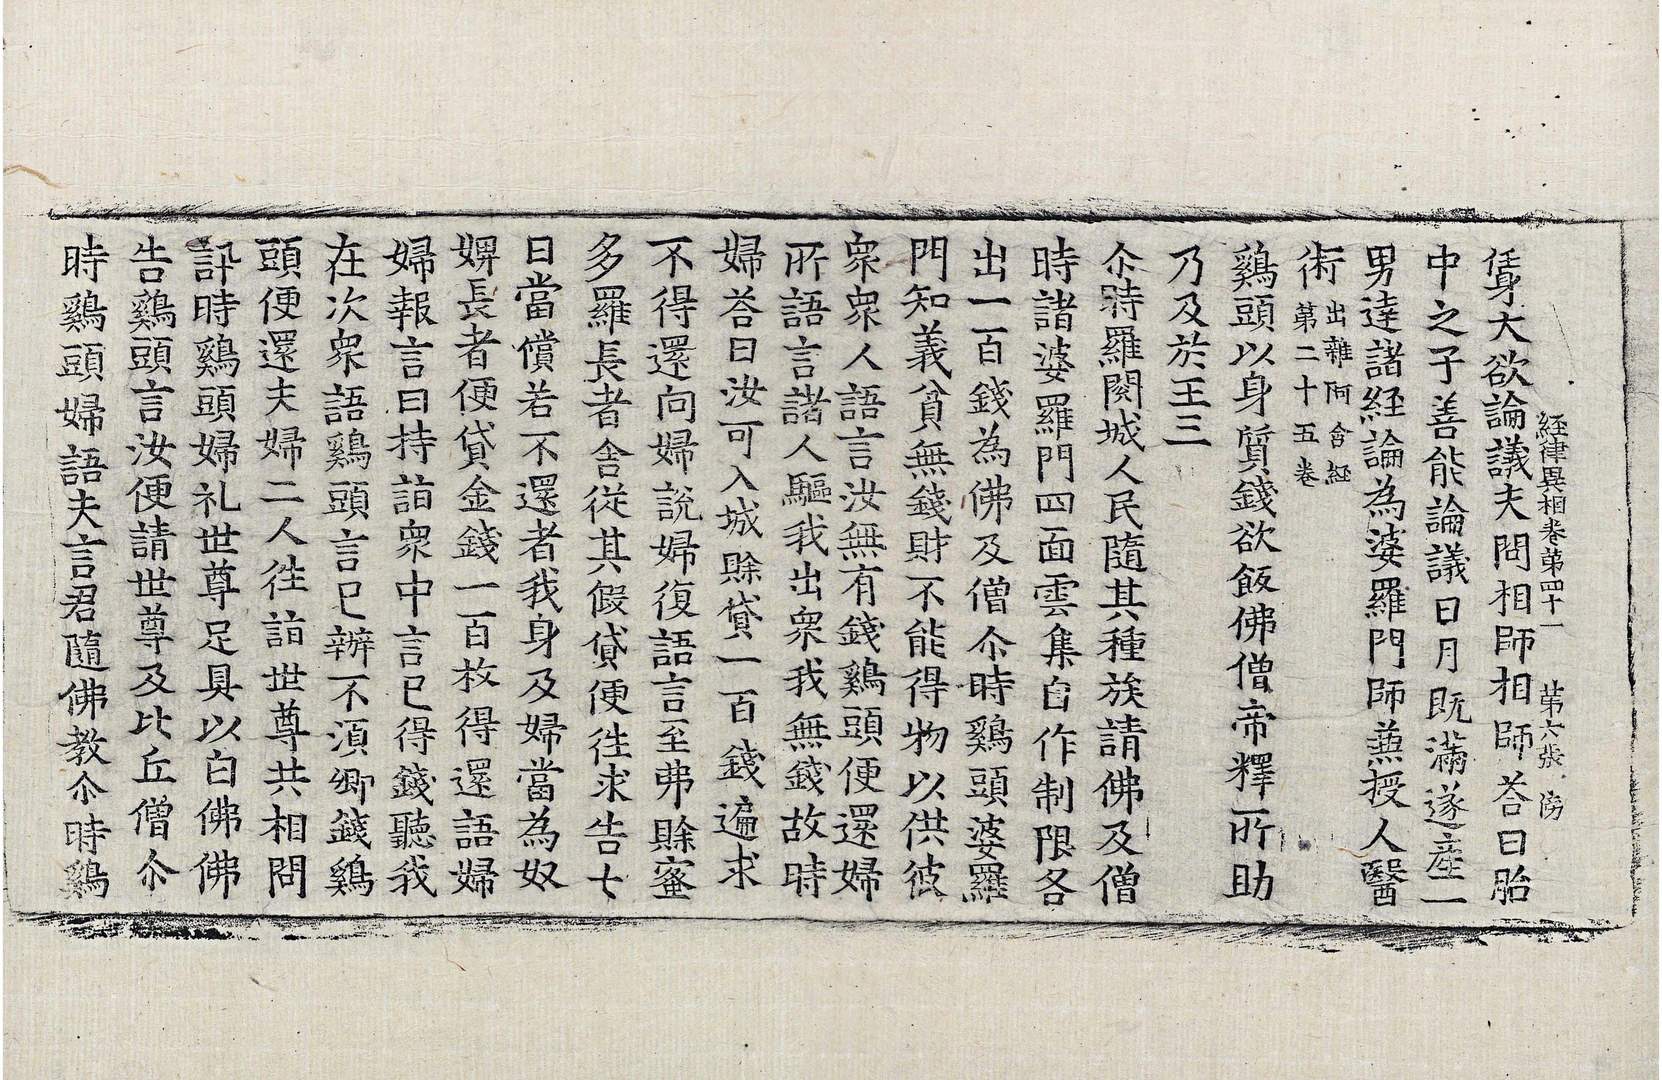 経律異相卷第四十一 第六張 滂
㑺身大欲論議夫問相師相師荅曰胎
中之子善能論議日月既滿遂産一
男達諸経論為婆羅門師兼授人醫
術出雜阿含経
第二十五卷
鷄頭以身質錢欲飯佛僧帝釋所助
乃及於王三
尒時羅閱城人民隨其種族請佛及僧
時諸婆羅門四面雲集自作制限各
出一百錢為佛及僧尒時鷄頭婆羅
門知義貧無錢財不能得物以供彼
衆衆人語言汝無有錢鷄頭便還婦
所語言諸人驅我出衆我無錢故時
婦荅曰汝可入城賖貸一百錢遍求
不得還向婦説婦復語言至弗賖蜜
多羅長者舎從其假貸便徃求告七
日當償若不還者我身及婦當為奴
婢長者便貸金錢一百枚得還語婦
婦報言曰持詣衆中言已得錢聽我
在次衆語鷄頭言已辨不湏卿錢鷄
頭便還夫婦二人徃詣世尊共相問
訊時鷄頭婦礼世尊足具以白佛佛
告鷄頭言汝便請世尊及比丘僧尒
時鷄頭婦語夫言君隨佛教尒時鷄